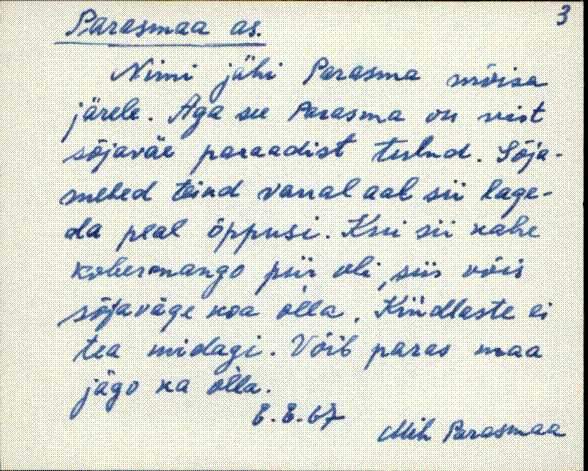 3
Parasmaa as.
Nimi jähi Parasma mõisa
järele. Aga see Parasma on vist
sõjaväe paraadist tulnd. Sõja-
mehed teind vanal aal sii lage-
da peal õppusi. Kui sii kahe
kobermango piir oli, siis võis
sõjaväge koa olla. Kindlaste ei
tea midagi. Võib paras maa
jägo ka olla.
8.8.67
Mih Parasmaa